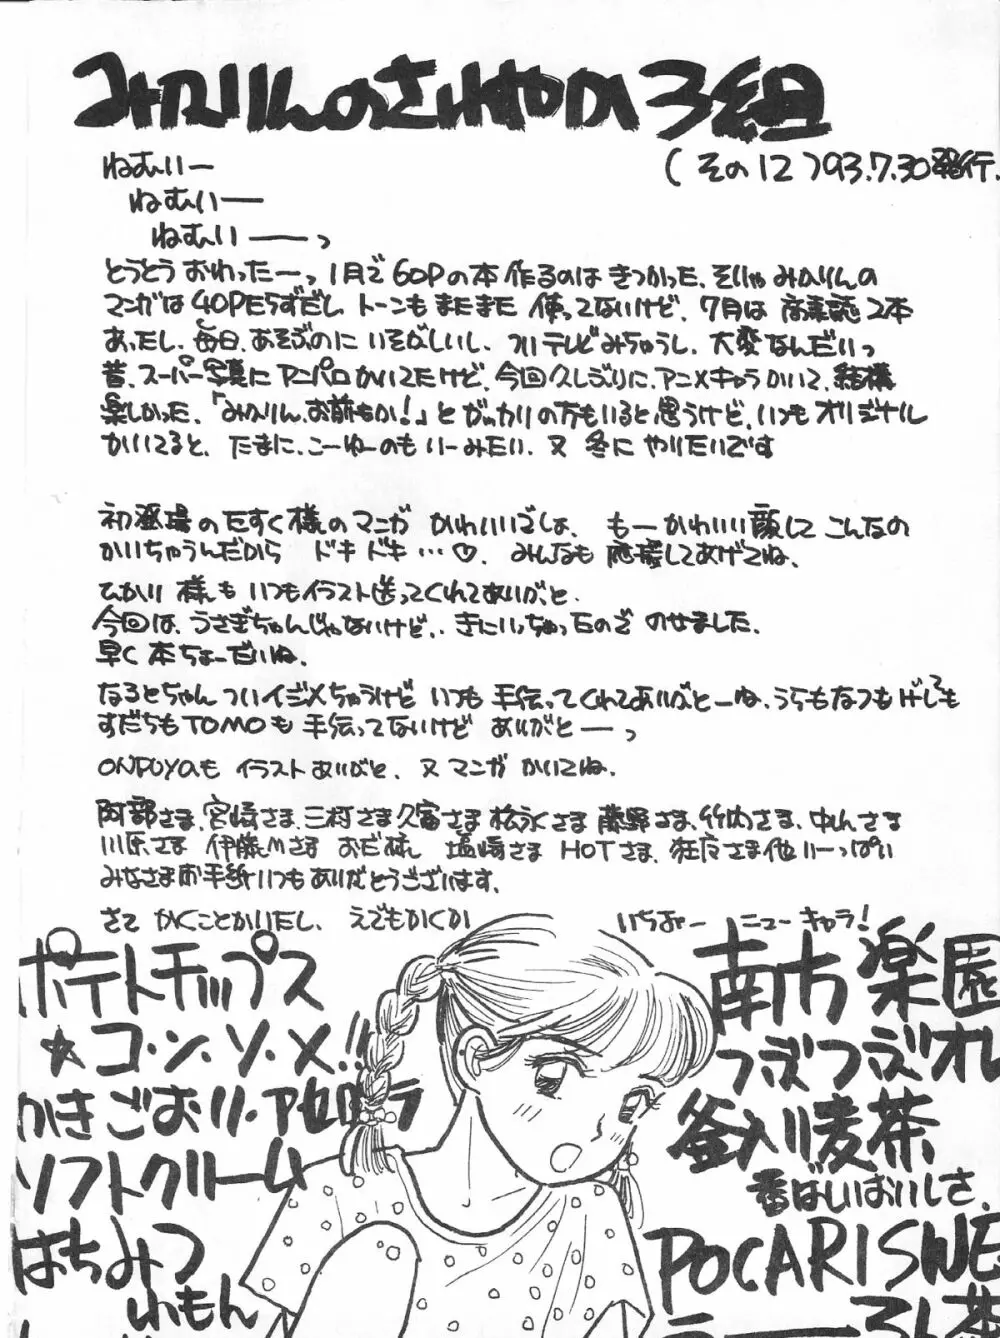 みかりんのさわやか3組
(その12)93.7.30発行.
ねむいー
ねむいー
ねむいーっ
とうとうおわったーっ 1月で60Pの本作るのはきつかった、そりゃみかりんの
マンガは40Pたらずだし トーンもまたまた使ってないけど、7月は 2本
あったし、毎日、あそぶのにいそがしいし、ついテレビみちゃうし、大変なんだいっ
昔、スーパー写真にアニパロかいてたけど、今回久しぶりに、アニメキャラかいて、結構
楽しかった、「みかりん、お前もか!」とがっかりの方もいると思うけど、いつもオリジナル
かいてると、たまに、こーゆーのもいーみたい、又 冬に やりたいです
初登場のたすく様のマンガ かわいいでしょ、もーかわいい顔して こんなの
かいちゃうんだから ドキドキ…♡、みんなも 応援してあげてね、
ひかり様も いつもイラスト送ってくれてありがと、
今回は、うさぎちゃんじゃないけど、、きにいっちゃったのざ のせました、
早く 本ちょーだいね、
なるとちゃん ついイジメちゃうけど いつも 手伝ってくれてありがとーね、うらもなつもげしても
すだちもTOMOも 手伝ってないけど ありがとーっ
ONPUYAも イラストありがと、又 マンガ かいてね、
阿部さま、宮崎さま、三村さま 久富さま 松永さま 藤野さま、竹内さま、中山さま
川原さま 伊藤Mさま おだ様、塩崎さま HOTさま、狂店さま他いーっぱい
みなさまお手紙いつもありがとうございます、
さて かくことかいたし、 えでもかくか
いちおー ニューキャラ!
ポテトチップス
☆コ・ン・ソ・メ!!
かきごおり・アセロラ
ソフトクリーム
はちみつ
れもん
南方楽園
つぶつぶオレ
釜入り麦茶
番ばしいおいしさ、
POCARISWE